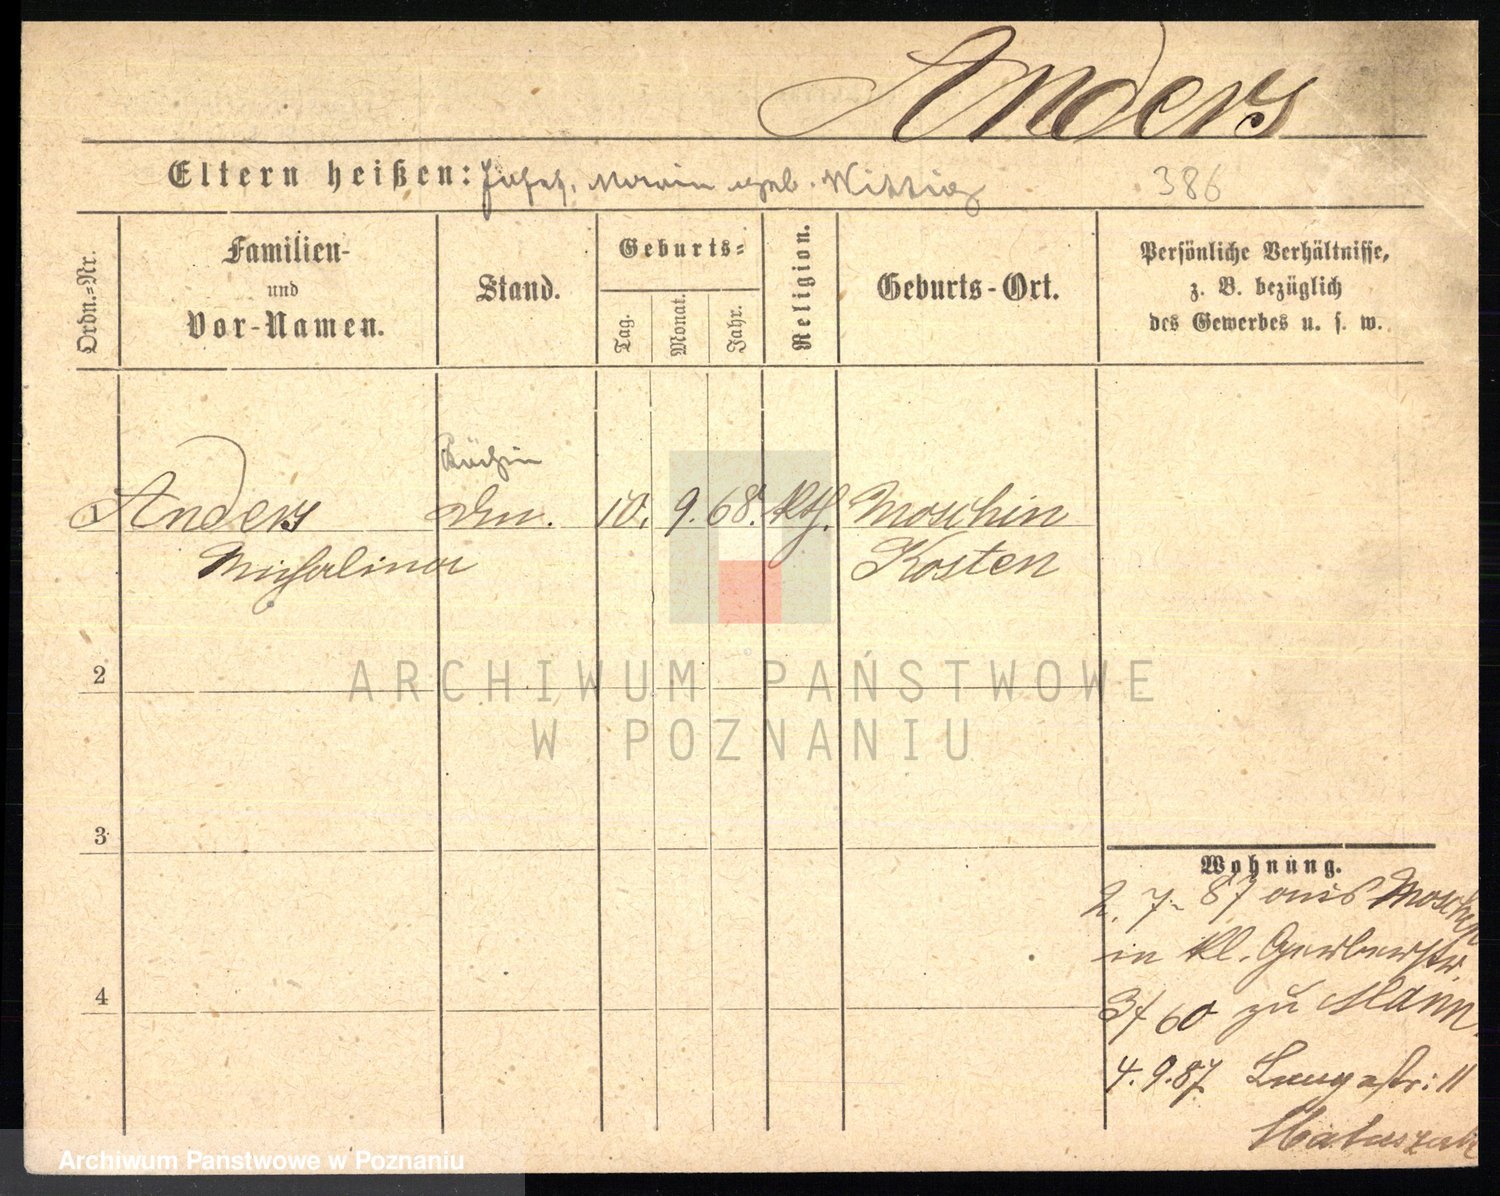 Anders
Eltern heißen: Josef, Maria geb. Wittig 386
Ordn.=Nr.
Familien-
und
Vor-Namen.
Stand.
Geburts=
Tag.
Monat.
Jahr.
Religion.
Geburts-Ort.
Persönliche Verhältnisse,
z. B. bezüglich
des Gewerbes u. s. w.
Köchin
1 Anders 10. 9. 68. Kth. Moschin
Michalina Kosten
2
3
4
Wohnung.
2. 7. 87 aus Moschin
in kl. Gerberstr.
3/60 zu
4. 9. 87 Langestr: 11
ARCHIWUM PAŃSTWOWE
W POZNANIU
Archiwum Państwowe w Poznaniu